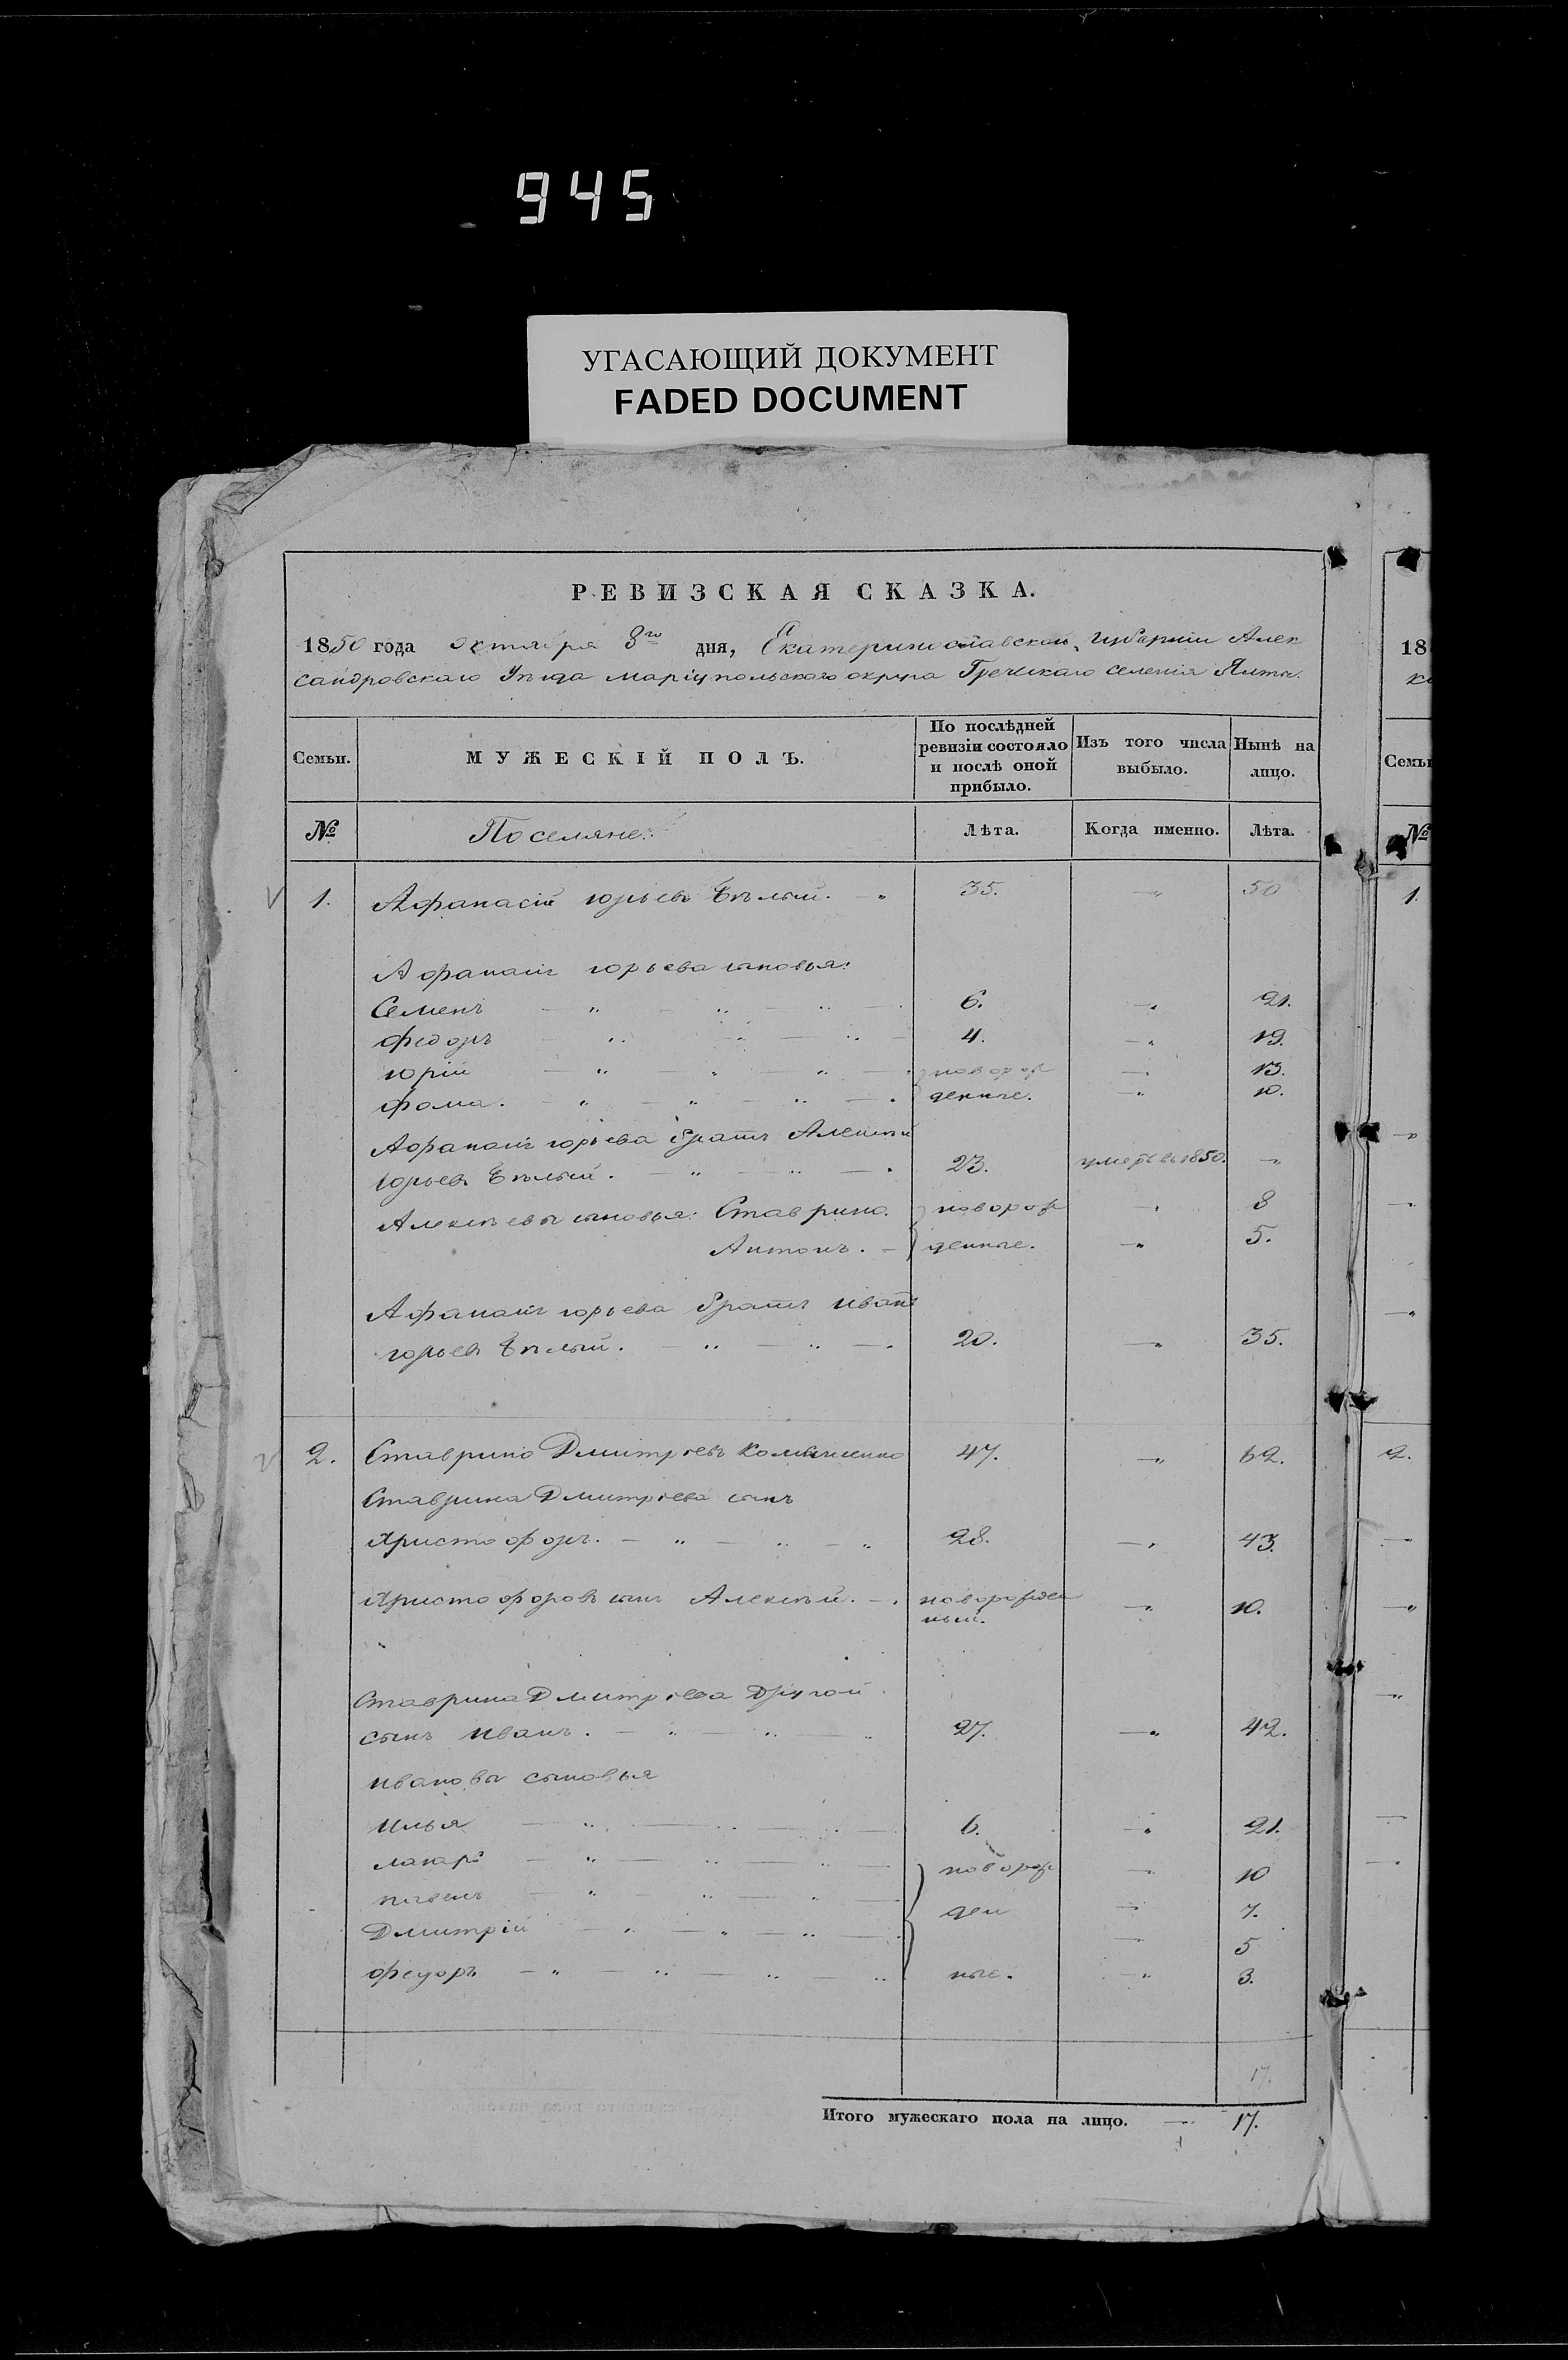 945
УГАСАЮЩИЙ ДОКУМЕНТ
FADED DOCUMENT
РЕВИЗСКАЯ СКАЗКА.
1850 года октября 8го дня, Екатеринославской губернии Алек
сандровскаго Уѣзда Маріупольского округа Греческаго селенія Ялты.
Семьи. МУЖЕСКІЙ ПОЛЪ. По послѣдней ревизіи состояло и послѣ оной прибыло. Изъ того числа выбыло. Нынѣ на лицо.
№ Поселяне: Лѣта. Когда именно. Лѣта.
1. Афанасій Юрьевъ Бѣлый. 35. — 50
Афанасія Юрьева сыновья:
Семенъ 6. — 21.
Федоръ 4. — 19.
Юрій новорож — 13.
Фома. денные. — 10.
Афанасія Юрьева братъ Алексѣй
Юрьевъ Бѣлый. 23. умеръ въ 1850. —
Алексѣевы сыновья: Ставрино. новорож — 8
Антонъ. денные. — 5.
Афанасія Юрьева братъ Иванъ
Юрьевъ Бѣлый. 20. — 35.
2. Ставрино Дмитріевъ 47. — 62.
Ставрина Дмитріева сынъ
Христофоръ. 28. — 43.
Христофоровъ сынъ Алексѣй. новорожден — 10.
ный.
Ставрина Дмитріева другой
сынъ Иванъ. 27. — 42.
Ивановы сыновья
Илья 6. — 21.
новорож — 10
Павелъ ден — 7.
Дмитрій — 5
Федоръ ные. — 3.
17.
Итого мужескаго пола на лицо. — 17.
18
Семьи
№
1.
2.